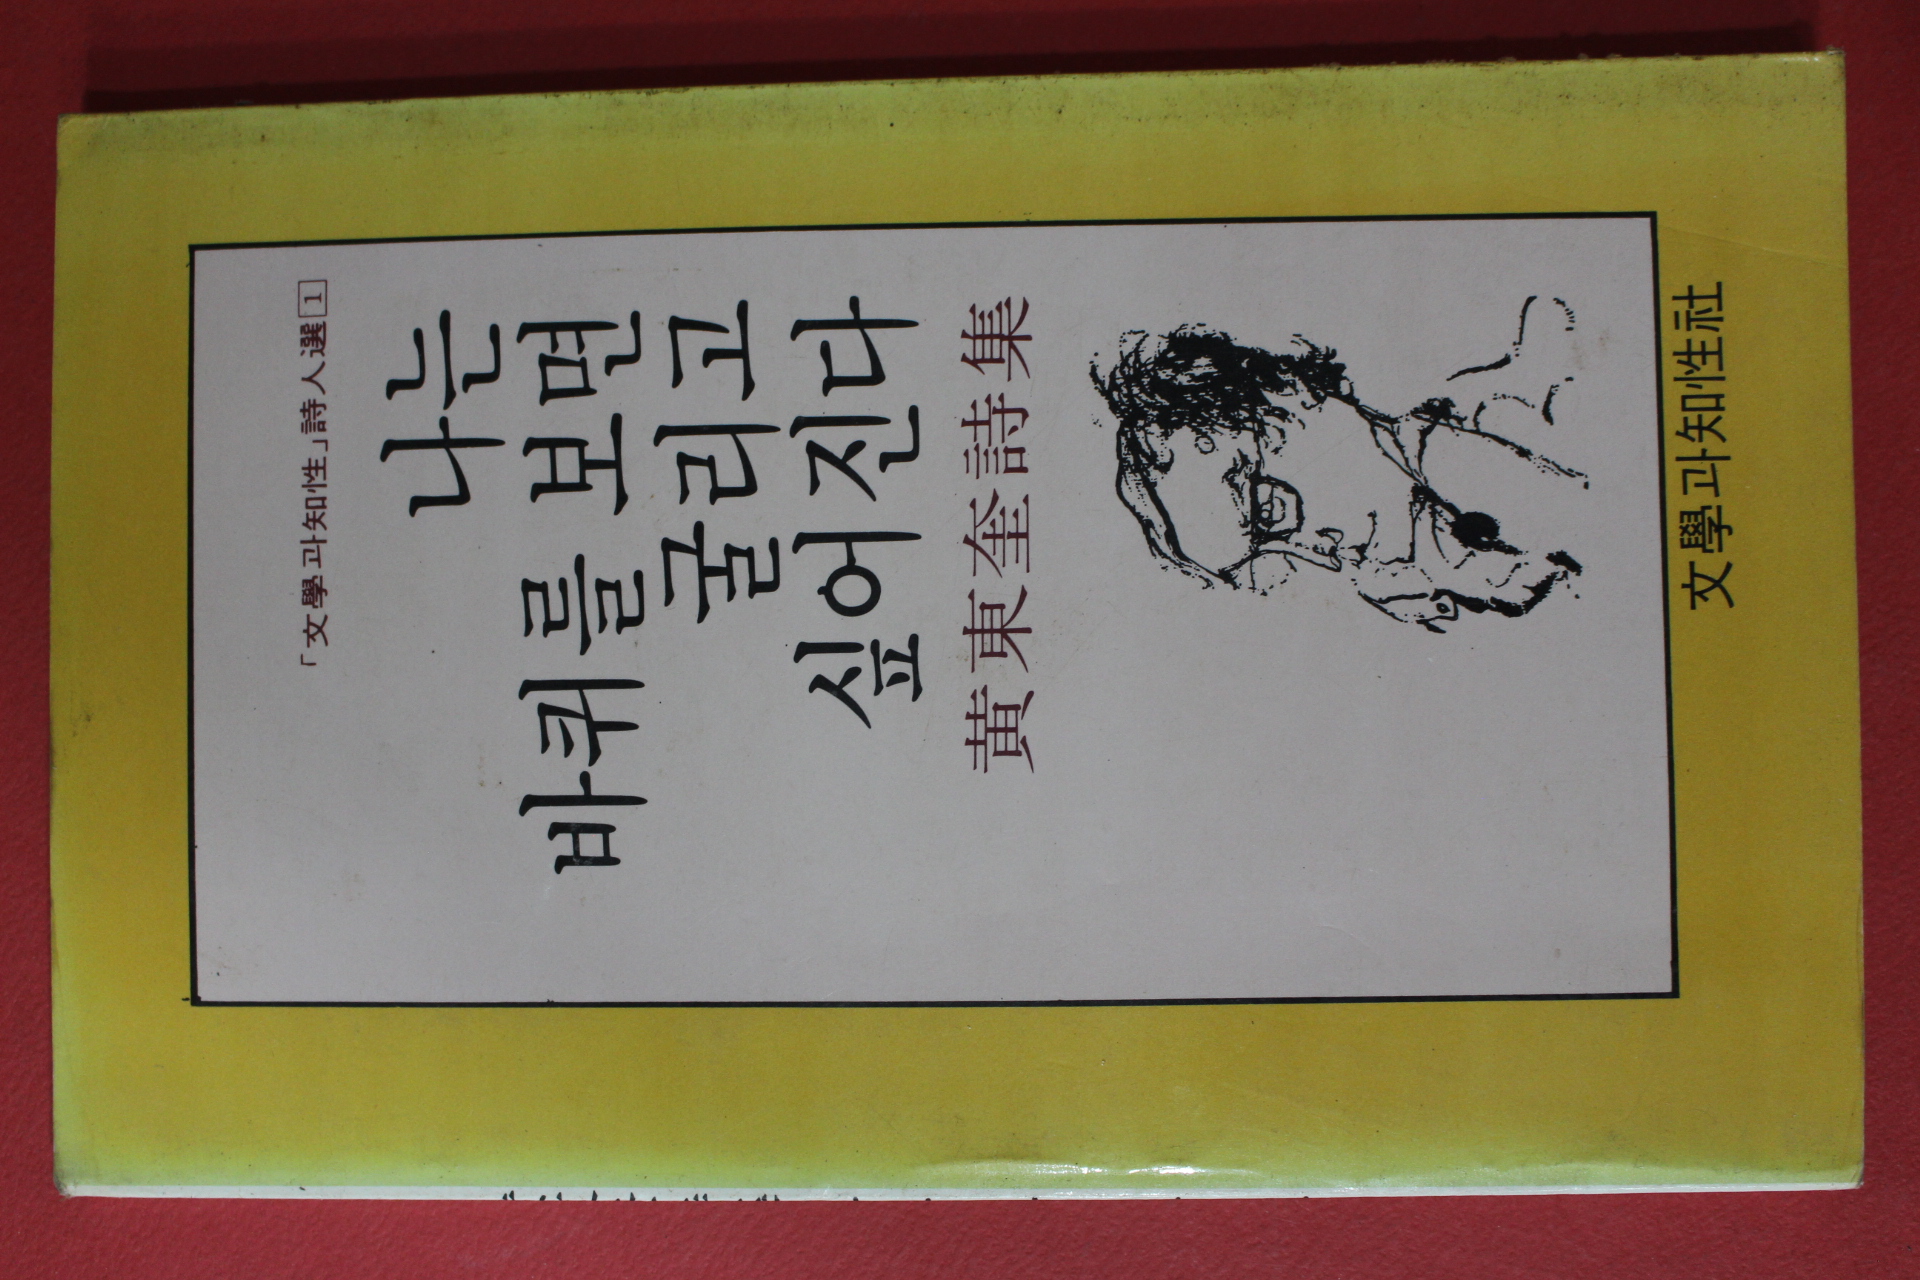 「文學과知性」詩人選 1
나는
바퀴를 보면
굴리고
싶어진다
黃東奎詩集
文學과知性社